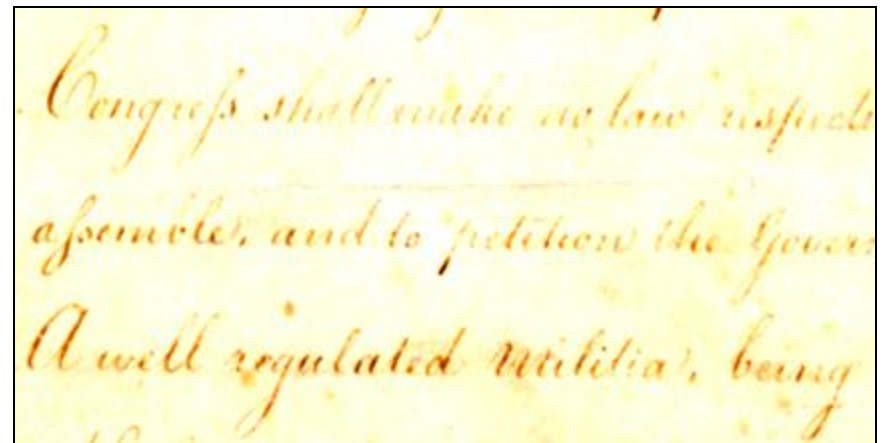 Congreſs shall make no law respecti
aſsemble, and to petition the Govern
A well regulated Militia, being